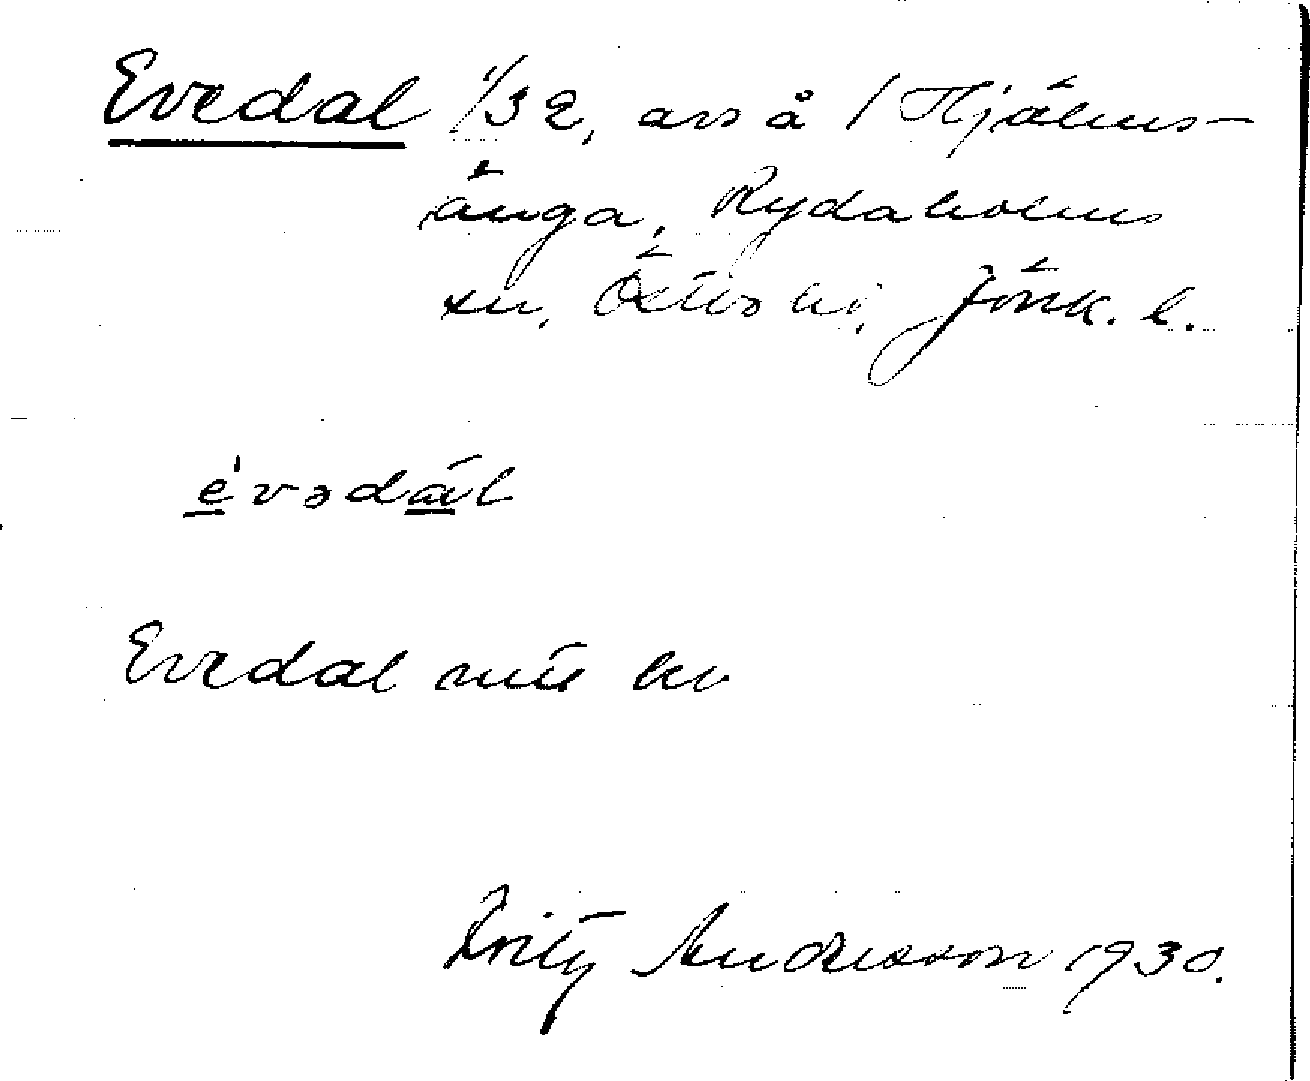 Evedal 1/32, avs å 1 Hjälms-
änga, Rydaholms
sn, Östbo hd, Jönk. l.
évədál
Evedal mtl
Fritz Andersson 1930.